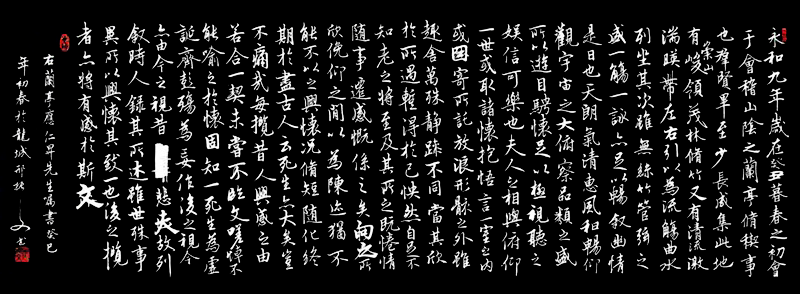 永和九年歲在癸丑暮春之初會
于會稽山陰之蘭亭脩稧事
也群賢畢至少長咸集此地
有崇山峻領茂林脩竹又有清流激
湍暎帶左右引以為流觴曲水
列坐其次雖無絲竹管弦之
盛一觴一詠亦足以暢叙幽情
是日也天朗氣清惠風和暢仰
觀宇宙之大俯察品類之盛
所以遊目騁懷足以極視聽之
娛信可樂也夫人之相與俯仰
一世或取諸懷抱悟言一室之內
或因寄所託放浪形骸之外雖
趣舍萬殊靜躁不同當其欣
於所遇輕得於己怏然自足不
知老之將至及其所之既惓情
隨事遷感慨係之矣向之所
欣俛仰之閒以為陳迹猶不
能不以之興懷況脩短隨化終
期於盡古人云死生亦大矣豈
不痛哉每攬昔人興感之由
若合一契未嘗不臨文嗟悼不
能喻之於懷固知一死生為虛
誕齊彭殤為妄作後之視今
亦由今之視昔悲夫故列
叙時人錄其所述雖世殊事
異所以興懷其致一也後之攬
者亦將有感於斯文
右蘭亭應仁昇先生屬書癸巳
年初春於龍城